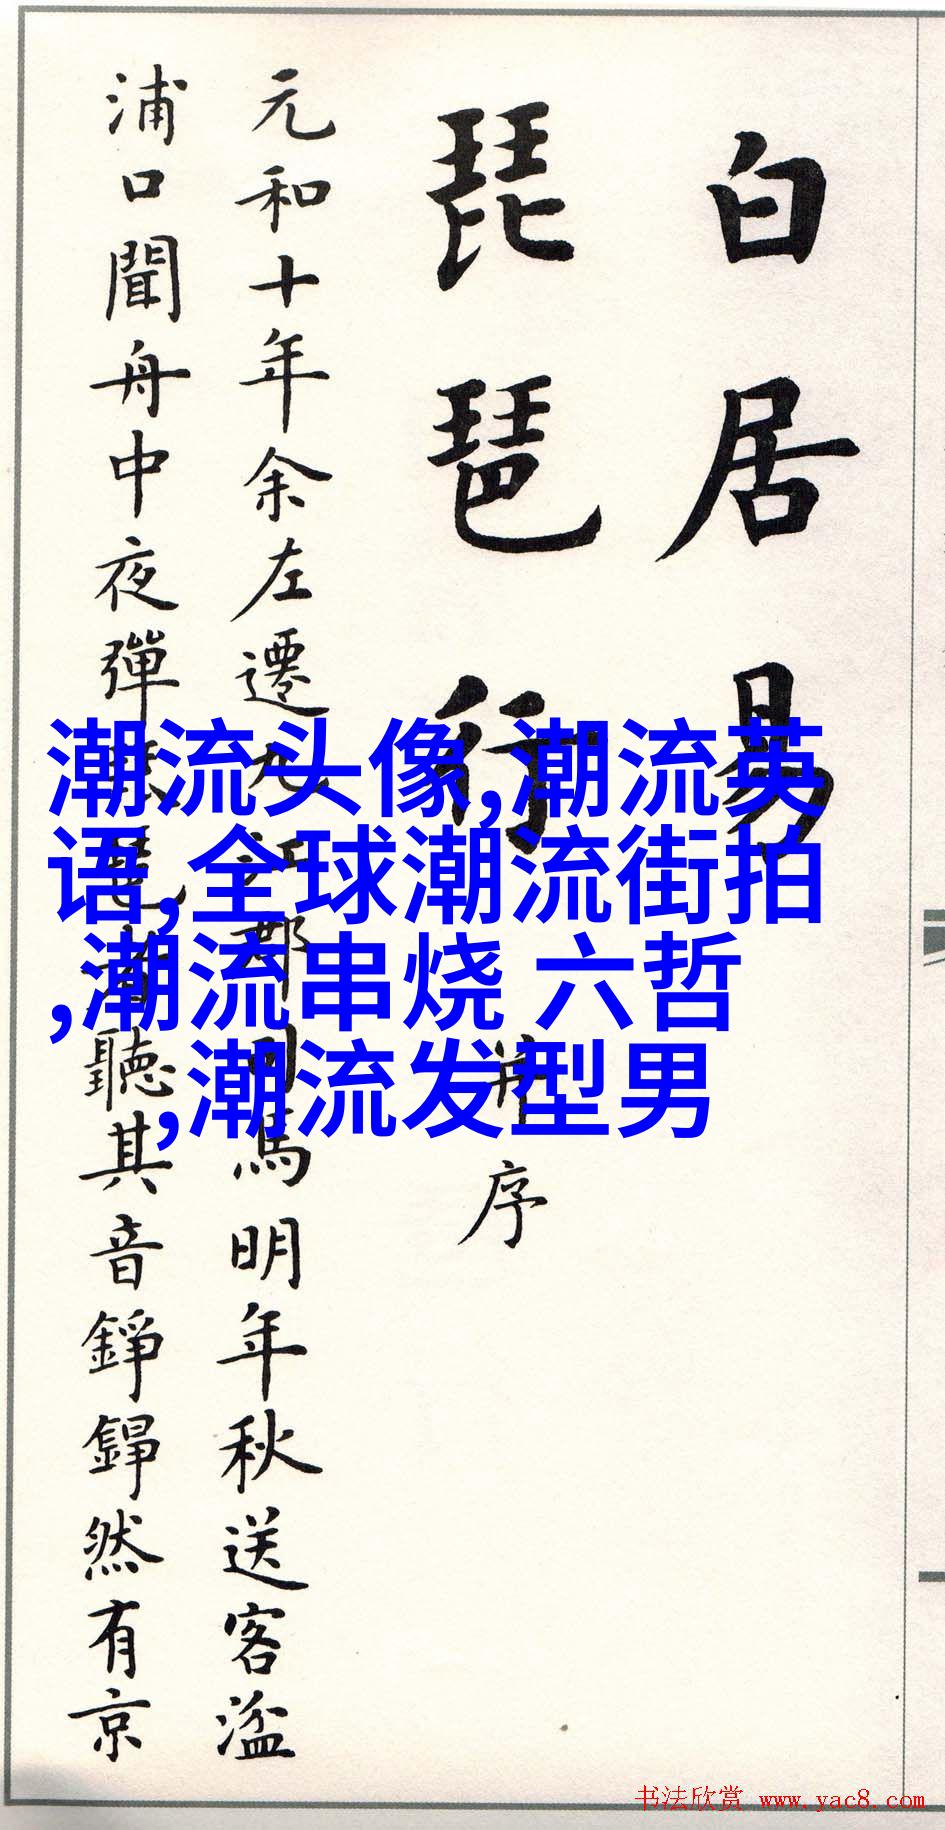 白居易
琵琶行
并序
元和十年余左遷九江郡司馬明年秋送客湓
浦口聞舟中夜彈琵琶者聽其音錚錚然有京
潮流头像,潮流英
语,全球潮流街拍
,潮流串烧 六哲
,潮流发型男
书法欣赏 www.yac8.com